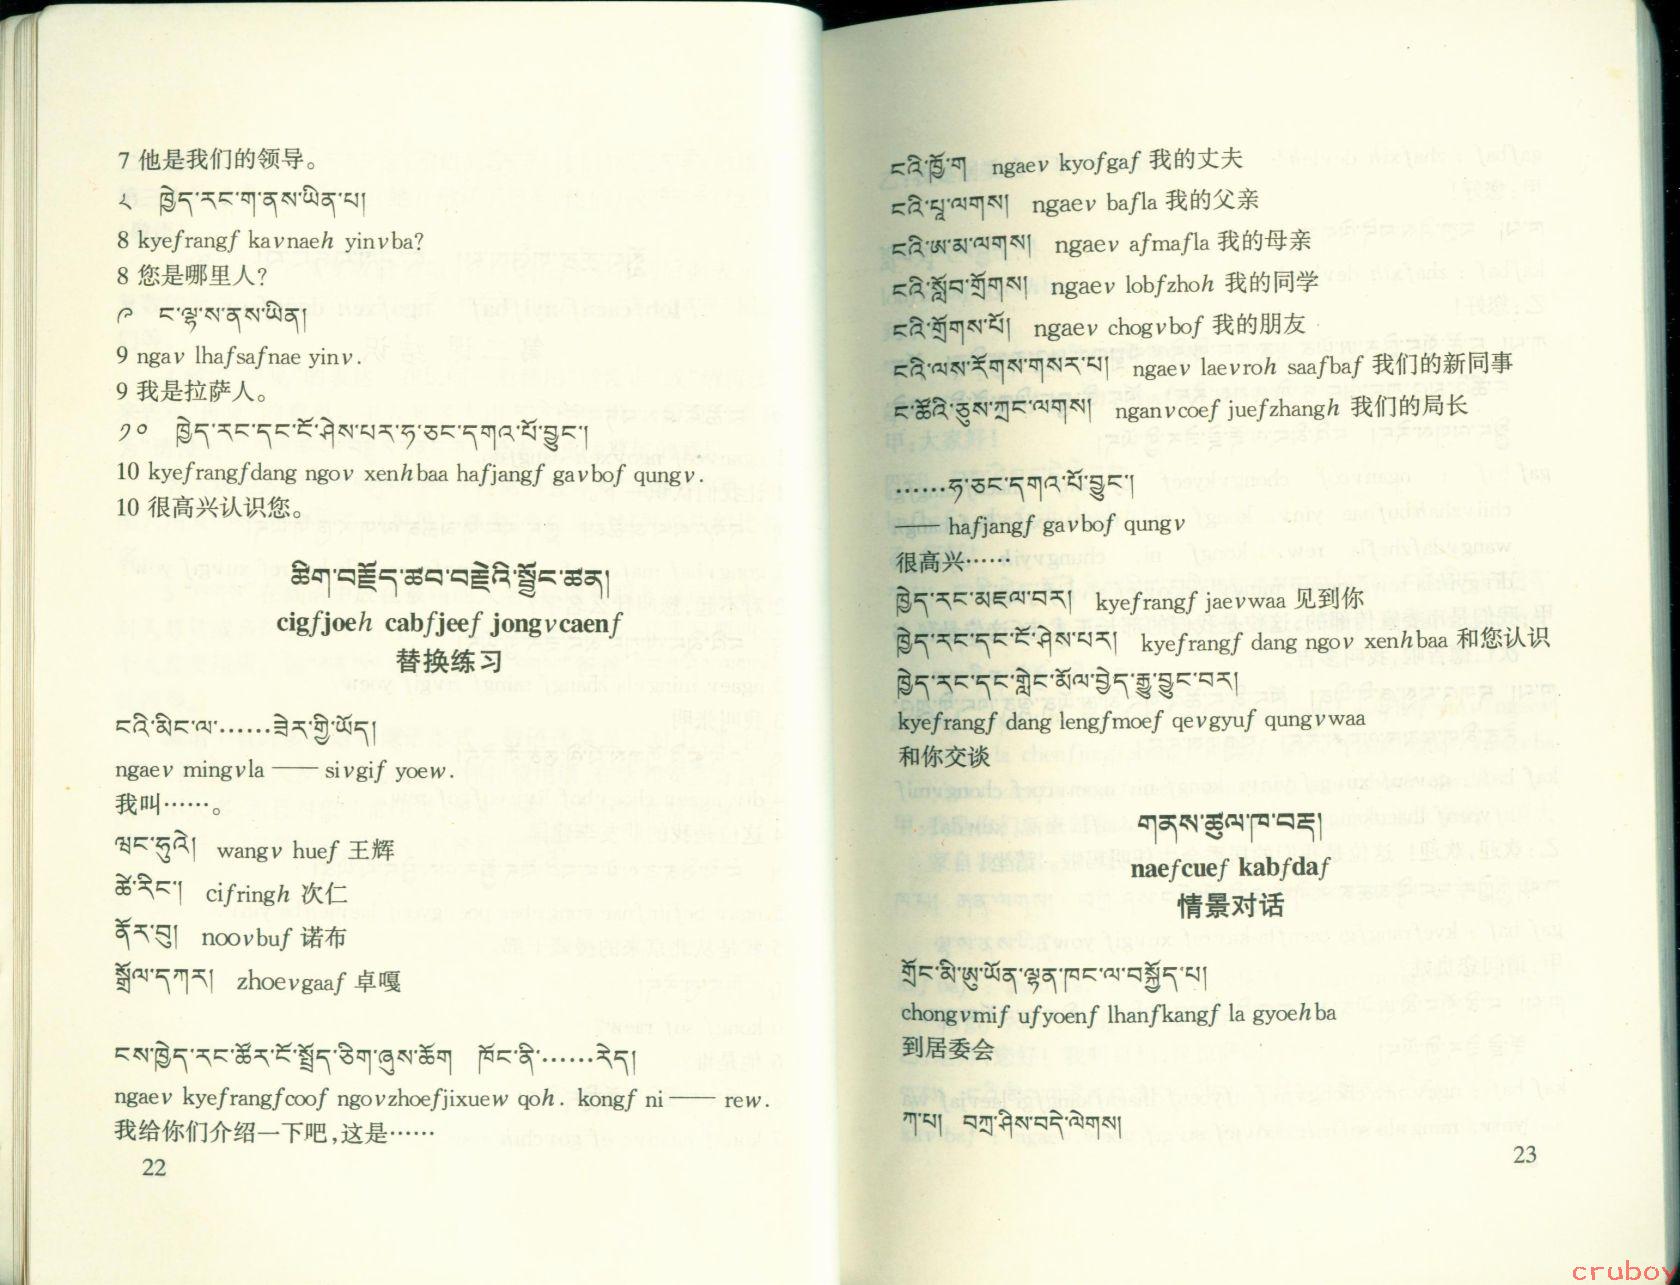 7 他是我们的领导。
༨ ཁྱེད་རང་ག་ནས་ཡིན་པ།
8 kyefrangf kavnaeh yinvba?
8 您是哪里人?
༩ ང་ལྷ་ས་ནས་ཡིན།
9 ngav lhafsafnae yinv.
9 我是拉萨人。
༡༠ ཁྱེད་རང་དང་ངོ་ཤེས་པར་ཧ་ཅང་དགའ་པོ་བྱུང་།
10 kyefrangfdang ngov xenhbaa hafjangf gavbof qungv.
10 很高兴认识您。
ཚིག་བརྗོད་ཚབ་བརྗེའི་སྦྱོང་ཚན།
cigfjoeh cabfjeef jongvcaenf
替换练习
ངའི་མིང་ལ་……ཟེར་གྱི་ཡོད།
ngaev mingvla —— sivgif yoew.
我叫……。
ཝང་ཧུའེ། wangv huef 王辉
ཚེ་རིང་། cifringh 次仁
ནོར་བུ། noovbuf 诺布
སྒྲོལ་དཀར། zhoevgaaf 卓嘎
ངས་ཁྱེད་རང་ཚོར་ངོ་སྤྲོད་ཅིག་ཞུས་ཆོག ཁོང་ནི་……རེད།
ngaev kyefrangfcoof ngovzhoefjixuew qoh. kongf ni —— rew.
我给你们介绍一下吧,这是……
22
ངའི་ཁྱོ་ག ngaev kyofgaf 我的丈夫
ངའི་པཱ་ལགས། ngaev bafla 我的父亲
ངའི་ཨ་མ་ལགས། ngaev afmafla 我的母亲
ངའི་སློབ་གྲོགས། ngaev lobfzhoh 我的同学
ངའི་གྲོགས་པོ། ngaev chogvbof 我的朋友
ངའི་ལས་རོགས་གསར་པ། ngaev laevroh saafbaf 我们的新同事
ང་ཚོའི་ཅུས་ཀྲང་ལགས། nganvcoef juefzhangh 我们的局长
……ཧ་ཅང་དགའ་པོ་བྱུང་།
—— hafjangf gavbof qungv
很高兴……
ཁྱེད་རང་མཇལ་བར། kyefrangf jaevwaa 见到你
ཁྱེད་རང་དང་ངོ་ཤེས་པར། kyefrangf dang ngov xenhbaa 和您认识
ཁྱེད་རང་དང་གླེང་མོལ་བྱེད་རྒྱུ་བྱུང་བར།
kyefrangf dang lengfmoef qevgyuf qungvwaa
和你交谈
གནས་ཚུལ་ཁ་བརྡ།
naefcuef kabfdaf
情景对话
གྲོང་མི་ཨུ་ཡོན་ལྷན་ཁང་ལ་བསྐྱོད་པ།
chongvmif ufyoenf lhanfkangf la gyoehba
到居委会
ཀ་པ། བཀྲ་ཤིས་བདེ་ལེགས།
23
cruboy